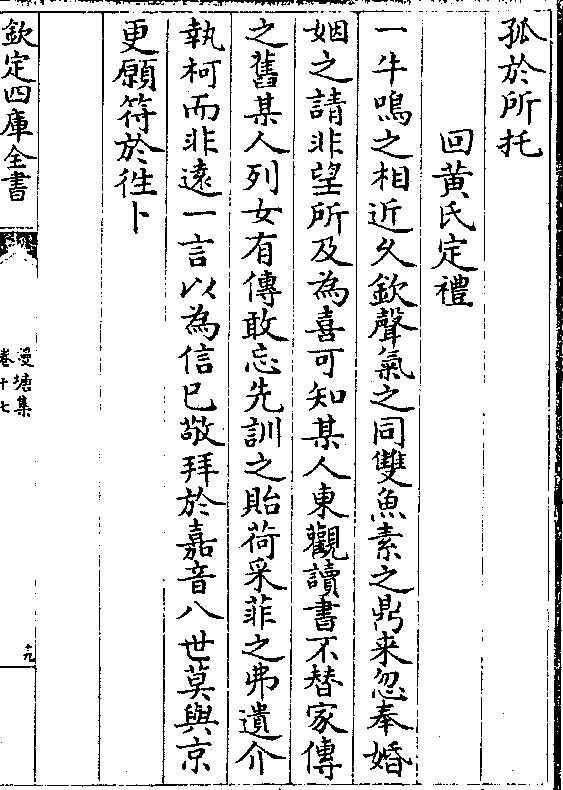 孤於所托
回黄氏定禮
一牛鳴之相近乆欽聲氣之同雙魚素之鼎来忽奉婚
姻之請非望所及為喜可知某人東觀讀書不替家傳
之舊某人列女有傳敢忘先訓之貽荷采菲之弗遺介
執柯而非遠一言以為信已敬拜於嘉音八世莫與京
更願符於徃卜
欽定四庫全書
漫塘集
卷十七
十九